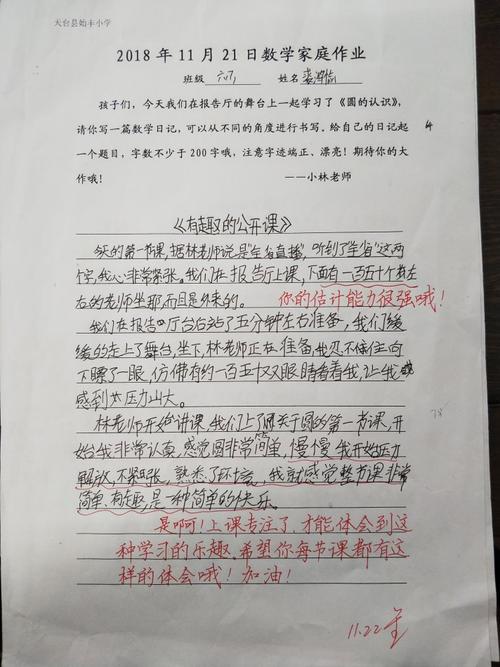 天台县始丰小学
2018 年 11 月 21 日数学家庭作业
班级 姓名
孩子们，今天我们在报告厅的舞台上一起学习了《圆的认识》，
请你写一篇数学日记，可以从不同的角度进行书写。给自己的日记起
一个题目，字数不少于 200 字哦，注意字迹端正、漂亮！期待你的大
作哦！ ——小林老师
《有趣的公开课》
今天的第一节课，据林老师说是“全省直播”，听到了“全省”这两
个字，我心非常紧张。我们在报告厅上课，下面有一百五十个左
右的老师坐那，而且是外来的。 你的估计能力很强哦！
我们在报告厅台后站了五分钟左右准备，我们缓
缓的走上了舞台，坐下，林老师正在准备我忍不住往向
下瞟了一眼，仿佛有约一百五十双眼睛看着我，让我
感到压力山大。
林老师开始讲课，我们上了关于圆的第一节课，开
始我非常认真，感觉圆非常简单，慢慢我开始压力
解放，不紧张，熟悉了环境，我就感觉整节课非常
简单、有趣，是一种简单的快乐。
是啊！上课专注了，才能体会到这
种学习的乐趣，希望你每节课都有这
样的体会哦！加油！
11.22